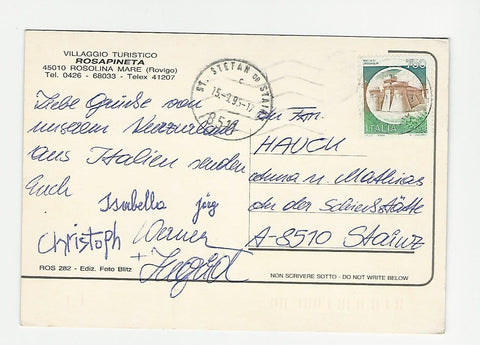 VILLAGGIO TURISTICO
ROSAPINETA
45010 ROSOLINA MARE (Rovigo)
Tel. 0426 - 68033 - Telex 41207
ST. STEFAN OB STAINZ
8511
ITALIA
Liebe Grüße von
unserem
aus Italien senden
Euch
Isabella Jörg
Christoph Werner
+ Ingrid
An Fam.
HAUCH
u. Mathias
an der
A-8510 Stainz
ROS 282 - Ediz. Foto Blitz
NON SCRIVERE SOTTO - DO NOT WRITE BELOW